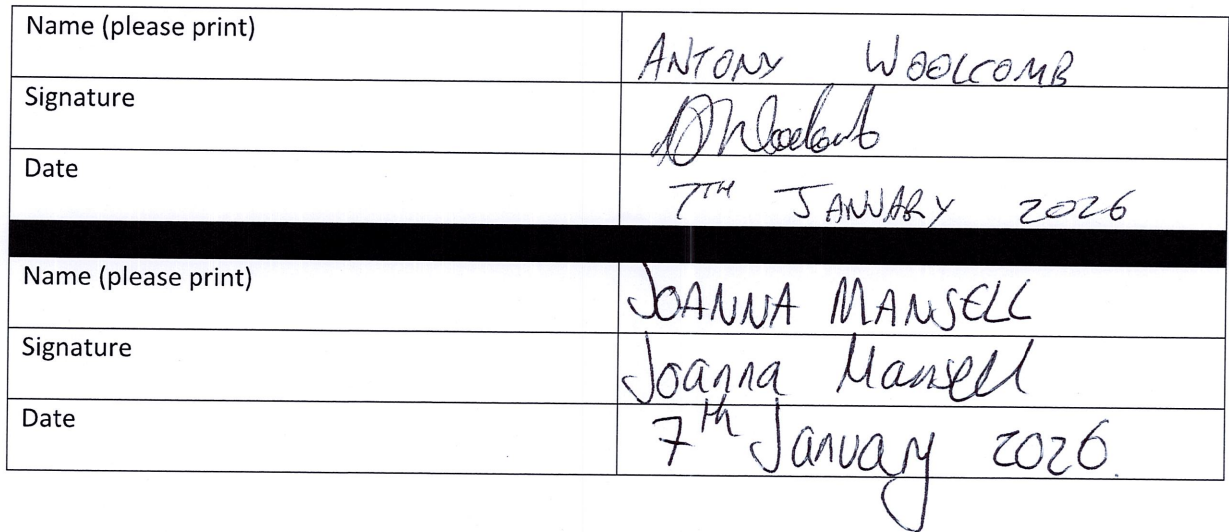 Name (please print)
ANTONY WOOLCOMB
Signature
Date
7TH JANUARY 2026
Name (please print)
JOANNA MANSELL
Signature
Joanna Mansell
Date
7th January 2026.